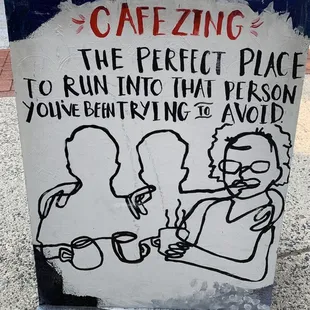 CAFEZING
THE PERFECT PLACE
TO RUN INTO THAT PERSON
YOU'VE BEEN TRYING TO AVOID.